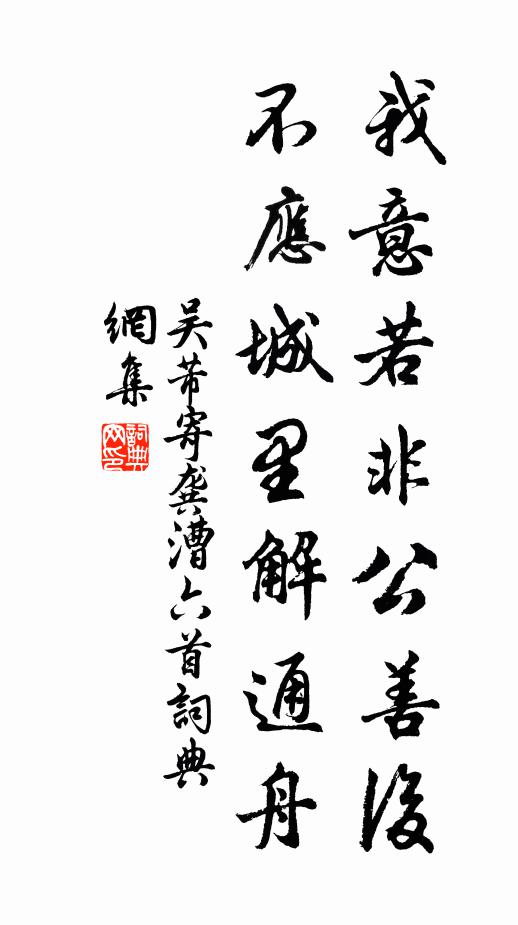 我意若非公善後
不應城里解通舟
吳芾寄龔漕六首詞典
網集
詞典網印